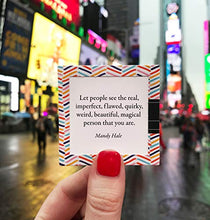 Let people see the real,
imperfect, flawed, quirky,
weird, beautiful, magical
person that you are.
Mandy Hale